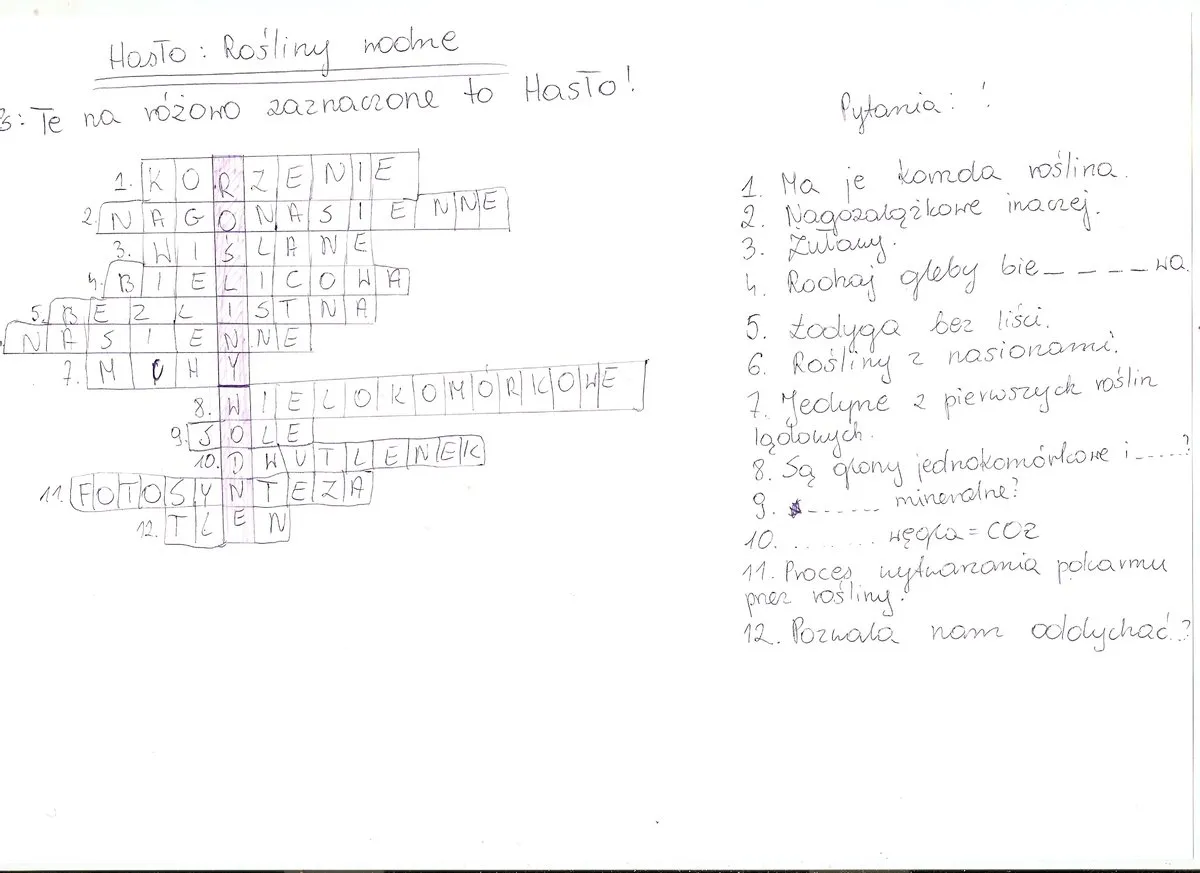 Hasło: Rośliny wodne
Ps: Te na różowo zaznaczone to Hasło!
1. KORZENIE
2. NAGONASIENNE
3. WIŚLANE
4. BIELICOWA
5. BEZLISTNA
NASIENNE
7. MCHY
8. WIELOKOMÓRKOWE
9. SOLE
10. DWUTLENEK
11. FOTOSYNTEZA
12. TLEN
Pytania:
1. Ma je każda roślina.
2. Nagozalążkowe inaczej.
3. Żuławy.
4. Rodzaj gleby bie_ _ _ _ wa
5. Łodyga bez liści.
6. Rośliny z nasionami.
7. Jedyne z pierwszych roślin
lądowych.
8. Są glony jednokomórkowe i ....?
9. ...... mineralne?
10. ........ węgla = CO2
11. Proces wytwarzania pokarmu
przez rośliny.
12. Pozwala nam oddychać.?